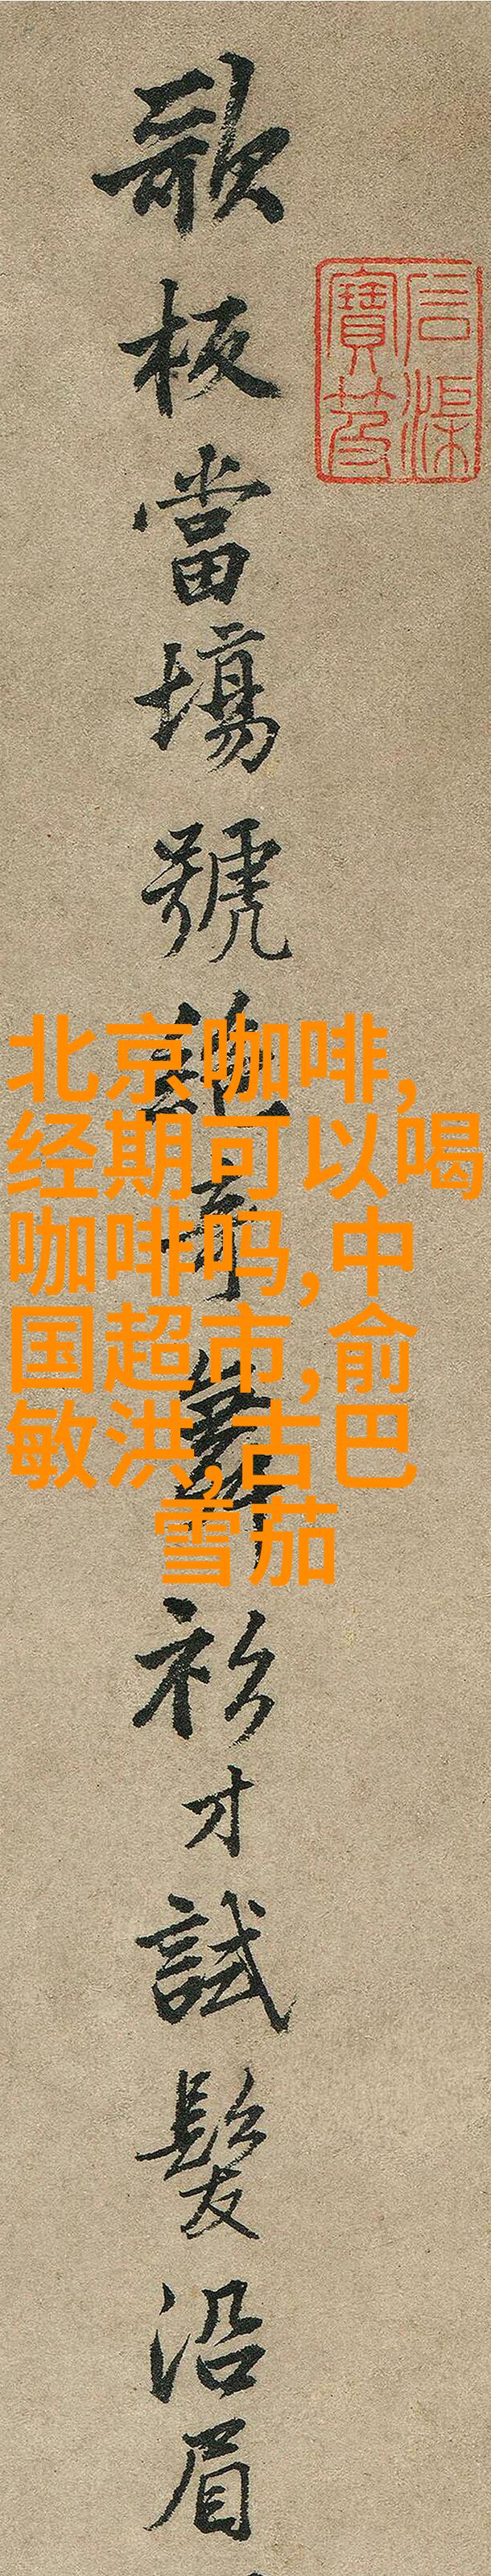 歌板當場號絶奇舞衫才試髮沿眉
信渠
寶笈
北京咖啡,
经期可以喝
咖啡吗,中
国超市,俞
敏洪,古巴
雪茄